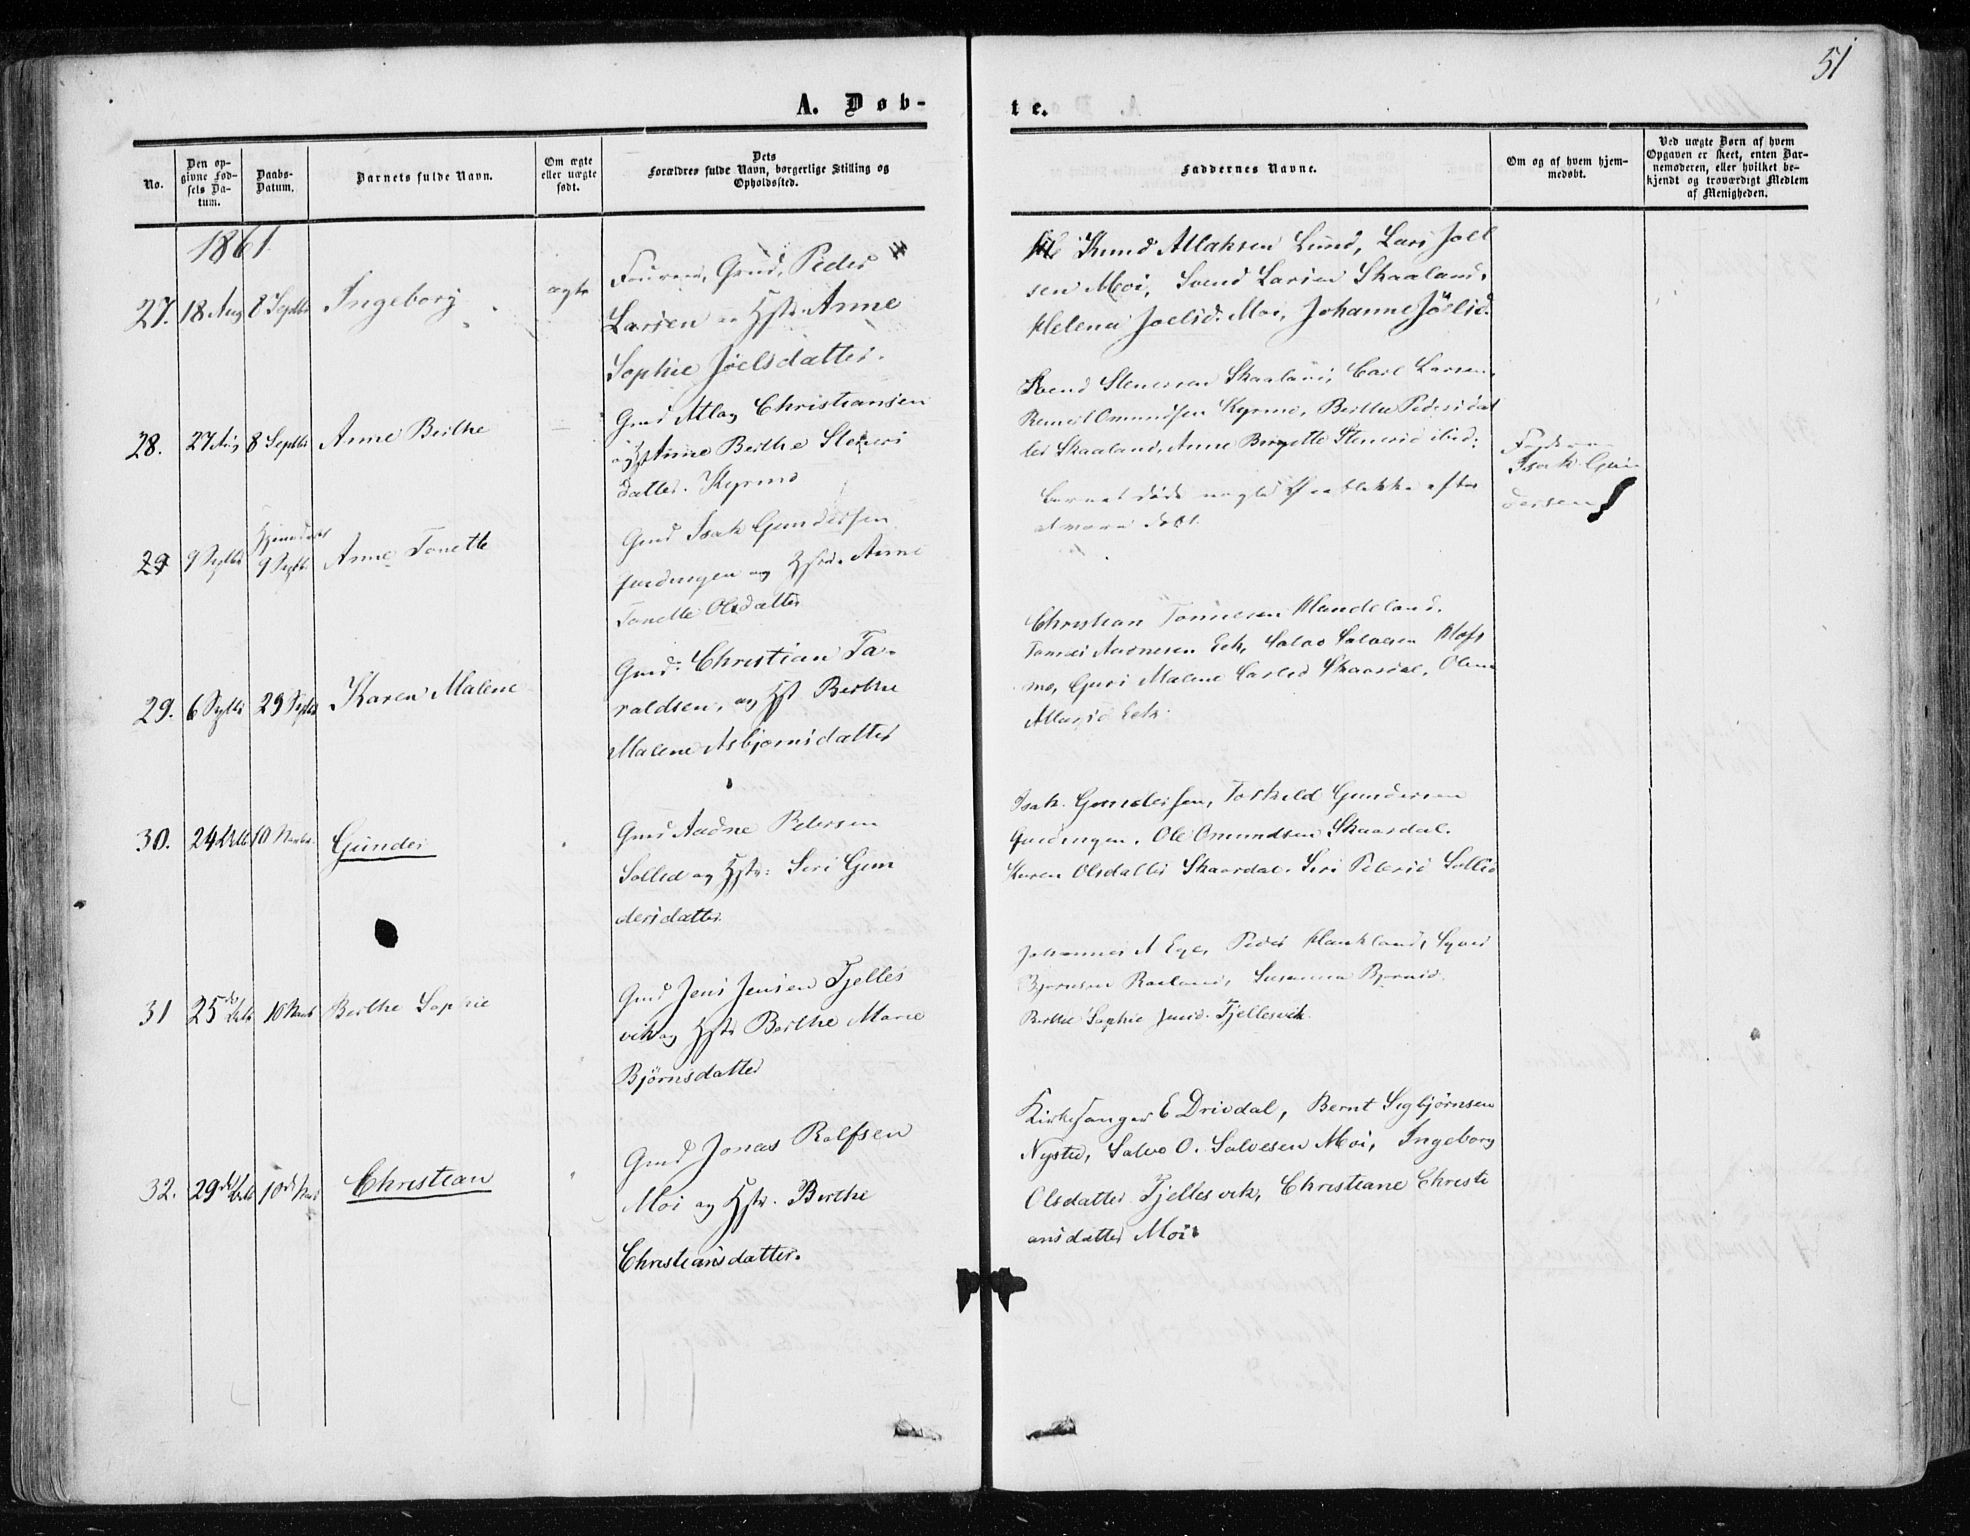 51
A. Døb-
te.
No.
Den op-
givne Fød-
sels Da-
tum.
Daabs-
Datum.
Barnets fulde Navn.
Om ægte
eller uægte
født.
Dets
Forældres fulde Navn, borgerlige Stilling og
Opholdssted.
Faddernes Navne.
Om og af hvem hjem-
medøbt.
Ved uægte Børn af hvem
Opgaven er skeet, enten Bar-
nemoderen, eller hvilket be-
kjendt og troværdigt Medlem
af Menigheden.
1861
27. 18 Aug 8 Septbr Ingeborg ægte
Gmd. Peder
Larsen og Hstr. Anne
Sophie Joelsdatter.
Knud Atlaksen Lund, Lars Joel
sen Moi, Svend Larsen Skaaland,
Helena Joelsd. Moi, Johanne Joelsd.
28. 27 Aug 8 Septbr Anne Berthe
Gmd Atlag Christiansen
og H Anne Berthe Steners
datter. Kyrmo
Svend Stenersen Skaaland, Carl Larsen,
Omundsen Kyrmo, Berthe Pedersdat
ter Skaaland, Anne Birgitte Stenersd ibid:
29 9 Septbr Hjemdøbt 9 Septbr Anne Tonette
Gmd Isak Gundersen
og Hstr. Anne
Tonette Olsdatter
Barnet døde nogle Øieblikke efter
at være døbt.
Faderen
Isak Gun
dersen
29. 6 Septbr 29 Septbr Karen Malene
Gmd: Christian Ta-
raldsen, og Hst Berthe
Malene Asbjørnsdatter
Christian Tønnesen Haudeland,
Tønnes Aadnesen Eek, Salve Salvesen Hafs
mo, Guri Malene Carlsd Skaardal, Olene
Atlagsd Eek.
30. 24 Octb 10 Novbr. Gunder
Gmd Aadne Petersen
Sollid og Hstr: Siri Gun
dersdatter
Isak Gundersen, Torkild Gundersen
Ole Omundsen Skaardal.
Karen Olsdatter Skaardal. Siri Petersd Sollid
31 25de Octb 10 Novb Berthe Sophie
Gmd Jens Jensen Fjelles
vik og Hstr Berthe Marie
Bjørnsdatter
Johannes A Ege, Peder Haukland, Sigvar
Bjørnsen Røiland, Susanna Bjørnsd.
Berthe Sophie Jensd. Fjellesvik
32. 29de Octb 10de Nov Christian
Gmd Jonas Rolfsen
Moi og Hstr. Berthe
Christiansdatter.
Kirkesanger E Drivdal, Bernt Sigbjørnsen
Nysted, Salve O. Salvesen Moi, Ingeborg
Olsdatter Fjellesvik, Christiane Christi
ansdatter Moi.